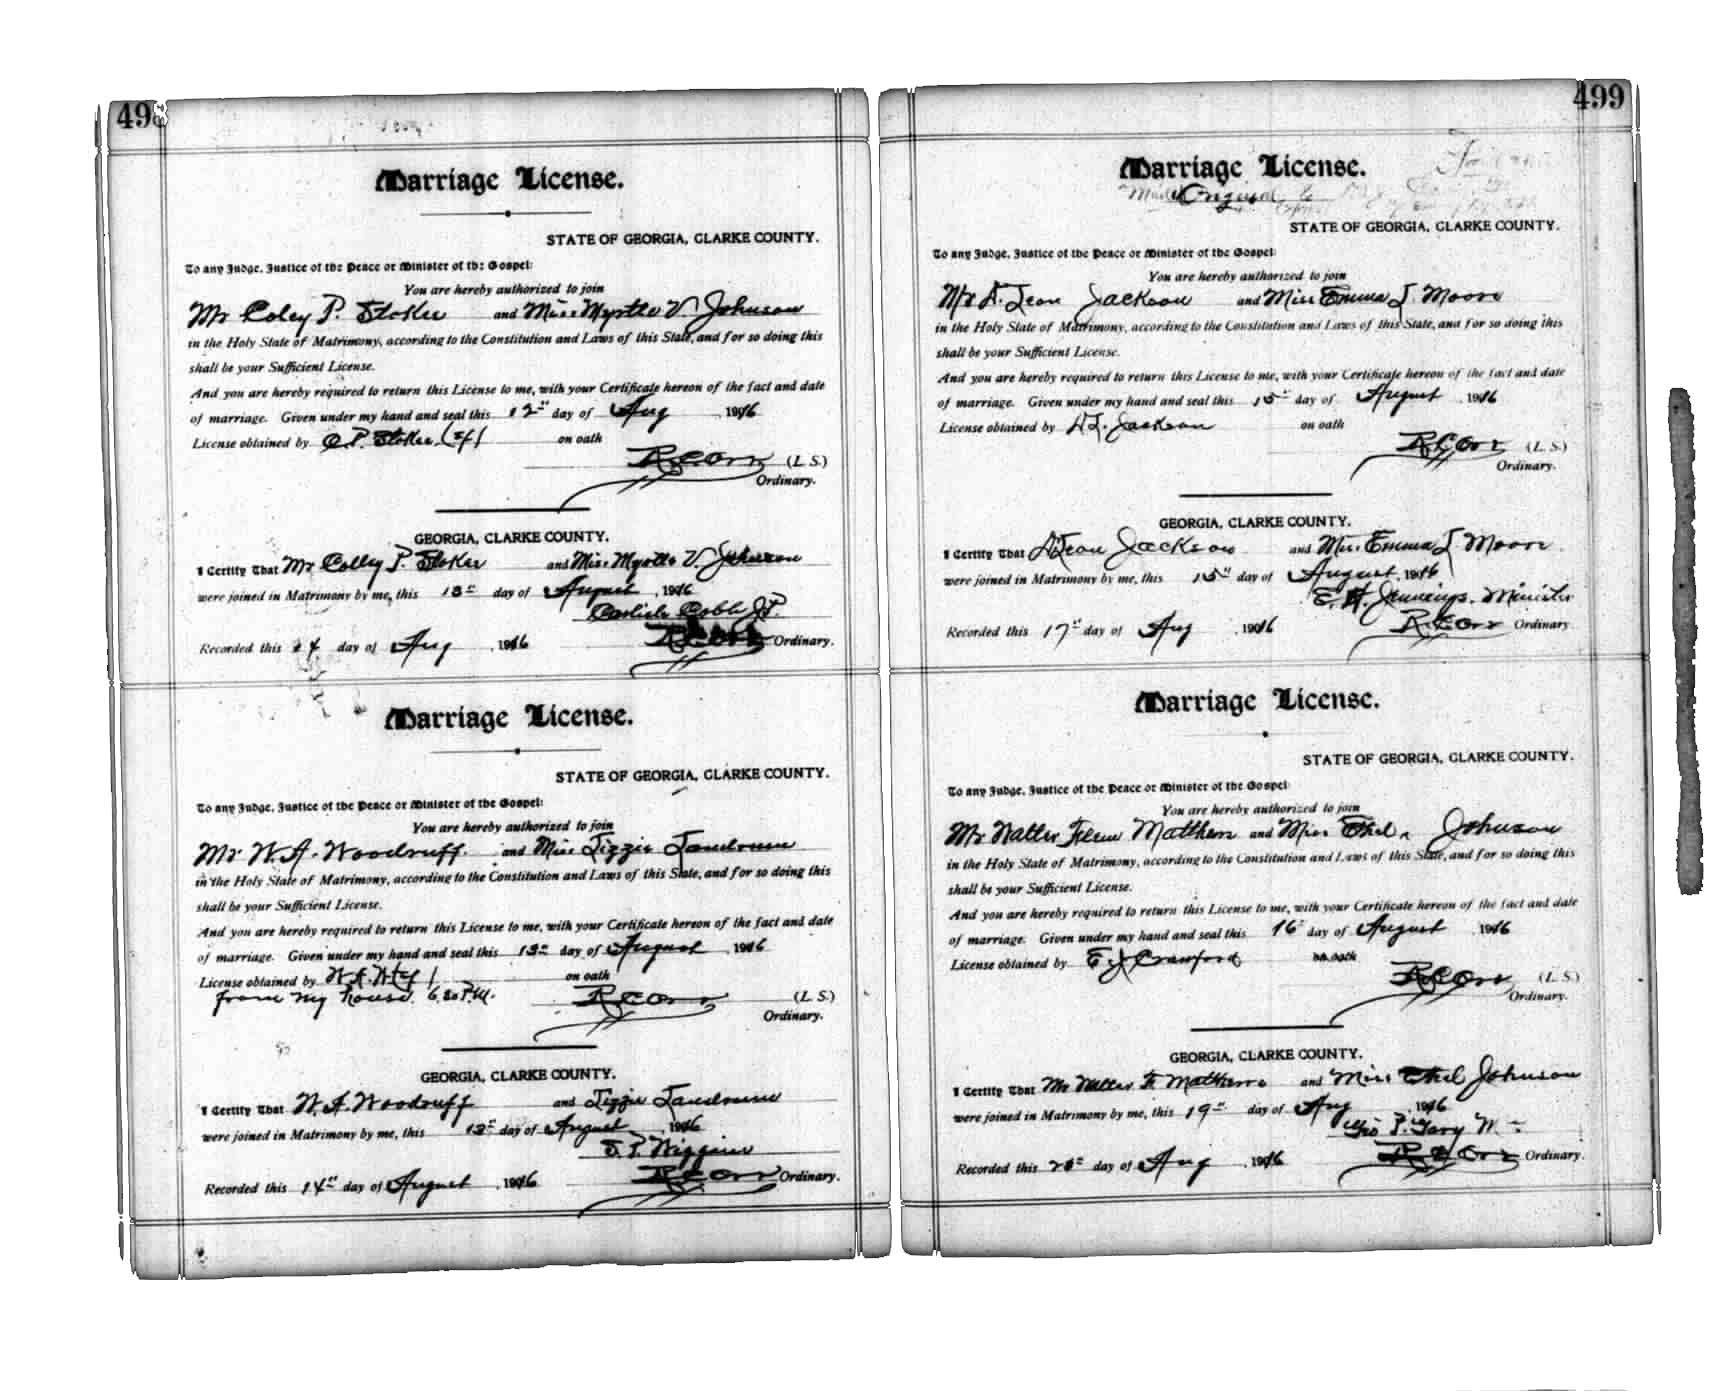 498
Marriage License.
STATE OF GEORGIA, CLARKE COUNTY.
To any Judge, Justice of the Peace or Minister of the Gospel:
You are hereby authorized to join
Mr Coley P. Stoker and Miss Myrtle V. Johnson
in the Holy State of Matrimony, according to the Constitution and Laws of this State, and for so doing this
shall be your Sufficient License.
And you are hereby required to return this License to me, with your Certificate hereon of the fact and date
of marriage. Given under my hand and seal this 12th day of Aug , 1916
License obtained by C.P. Stoker on oath
R.C. Orr (L. S.)
Ordinary.
GEORGIA, CLARKE COUNTY.
I Certify That Mr Colley P. Stoker and Miss Myrtle V. Johnson
were joined in Matrimony by me, this 13th day of August , 1916
Carlisle Cobb J.P.
Recorded this 14 day of Aug , 1916 R.C. Orr Ordinary.
Marriage License.
STATE OF GEORGIA, CLARKE COUNTY.
To any Judge, Justice of the Peace or Minister of the Gospel:
You are hereby authorized to join
Mr W.A. Woodruff. and Miss Lizzie Landrum
in the Holy State of Matrimony, according to the Constitution and Laws of this State, and for so doing this
shall be your Sufficient License.
And you are hereby required to return this License to me, with your Certificate hereon of the fact and date
of marriage. Given under my hand and seal this 13th day of August 1916
License obtained by W.A.W. on oath
from my house 6.30 P.M. R.C. Orr (L. S.)
Ordinary.
GEORGIA, CLARKE COUNTY.
I Certify That W.A. Woodruff and Lizzie Landrum
were joined in Matrimony by me, this 13th day of August , 1916
S. P. Wiggins
Recorded this 14th day of August , 1916 R.C. Orr Ordinary.
499
Marriage License.
Original
STATE OF GEORGIA, CLARKE COUNTY.
To any Judge, Justice of the Peace or Minister of the Gospel:
You are hereby authorized to join
Mr A. Leon Jackson and Miss Emma J. Moore
in the Holy State of Matrimony, according to the Constitution and Laws of this State, and for so doing this
shall be your Sufficient License.
And you are hereby required to return this License to me, with your Certificate hereon of the fact and date
of marriage. Given under my hand and seal this 15th day of August , 1916
License obtained by A.L. Jackson on oath
R.C. Orr (L. S.)
Ordinary.
GEORGIA, CLARKE COUNTY.
I Certify That A. Leon Jackson and Miss. Emma J Moore
were joined in Matrimony by me, this 15th day of August , 1916
E. H. Jennings. Minister
Recorded this 17th day of Aug , 1916 R.C. Orr Ordinary
Marriage License.
STATE OF GEORGIA, CLARKE COUNTY.
To any Judge, Justice of the Peace or Minister of the Gospel:
You are hereby authorized to join
Mr Walter Flem Matthews and Miss Ethel Johnson
in the Holy State of Matrimony, according to the Constitution and Laws of this State, and for so doing this
shall be your Sufficient License.
And you are hereby required to return this License to me, with your Certificate hereon of the fact and date
of marriage. Given under my hand and seal this 16 day of August , 1916
License obtained by E.J. Crawford on oath
R.C. Orr (L. S.)
Ordinary.
GEORGIA, CLARKE COUNTY.
I Certify That Mr Walter F. Matthews and Miss Ethel Johnson
were joined in Matrimony by me, this 19th day of Aug 1916
Geo P. Gary
Recorded this day of Aug , 1916 R.C. Orr Ordinary.